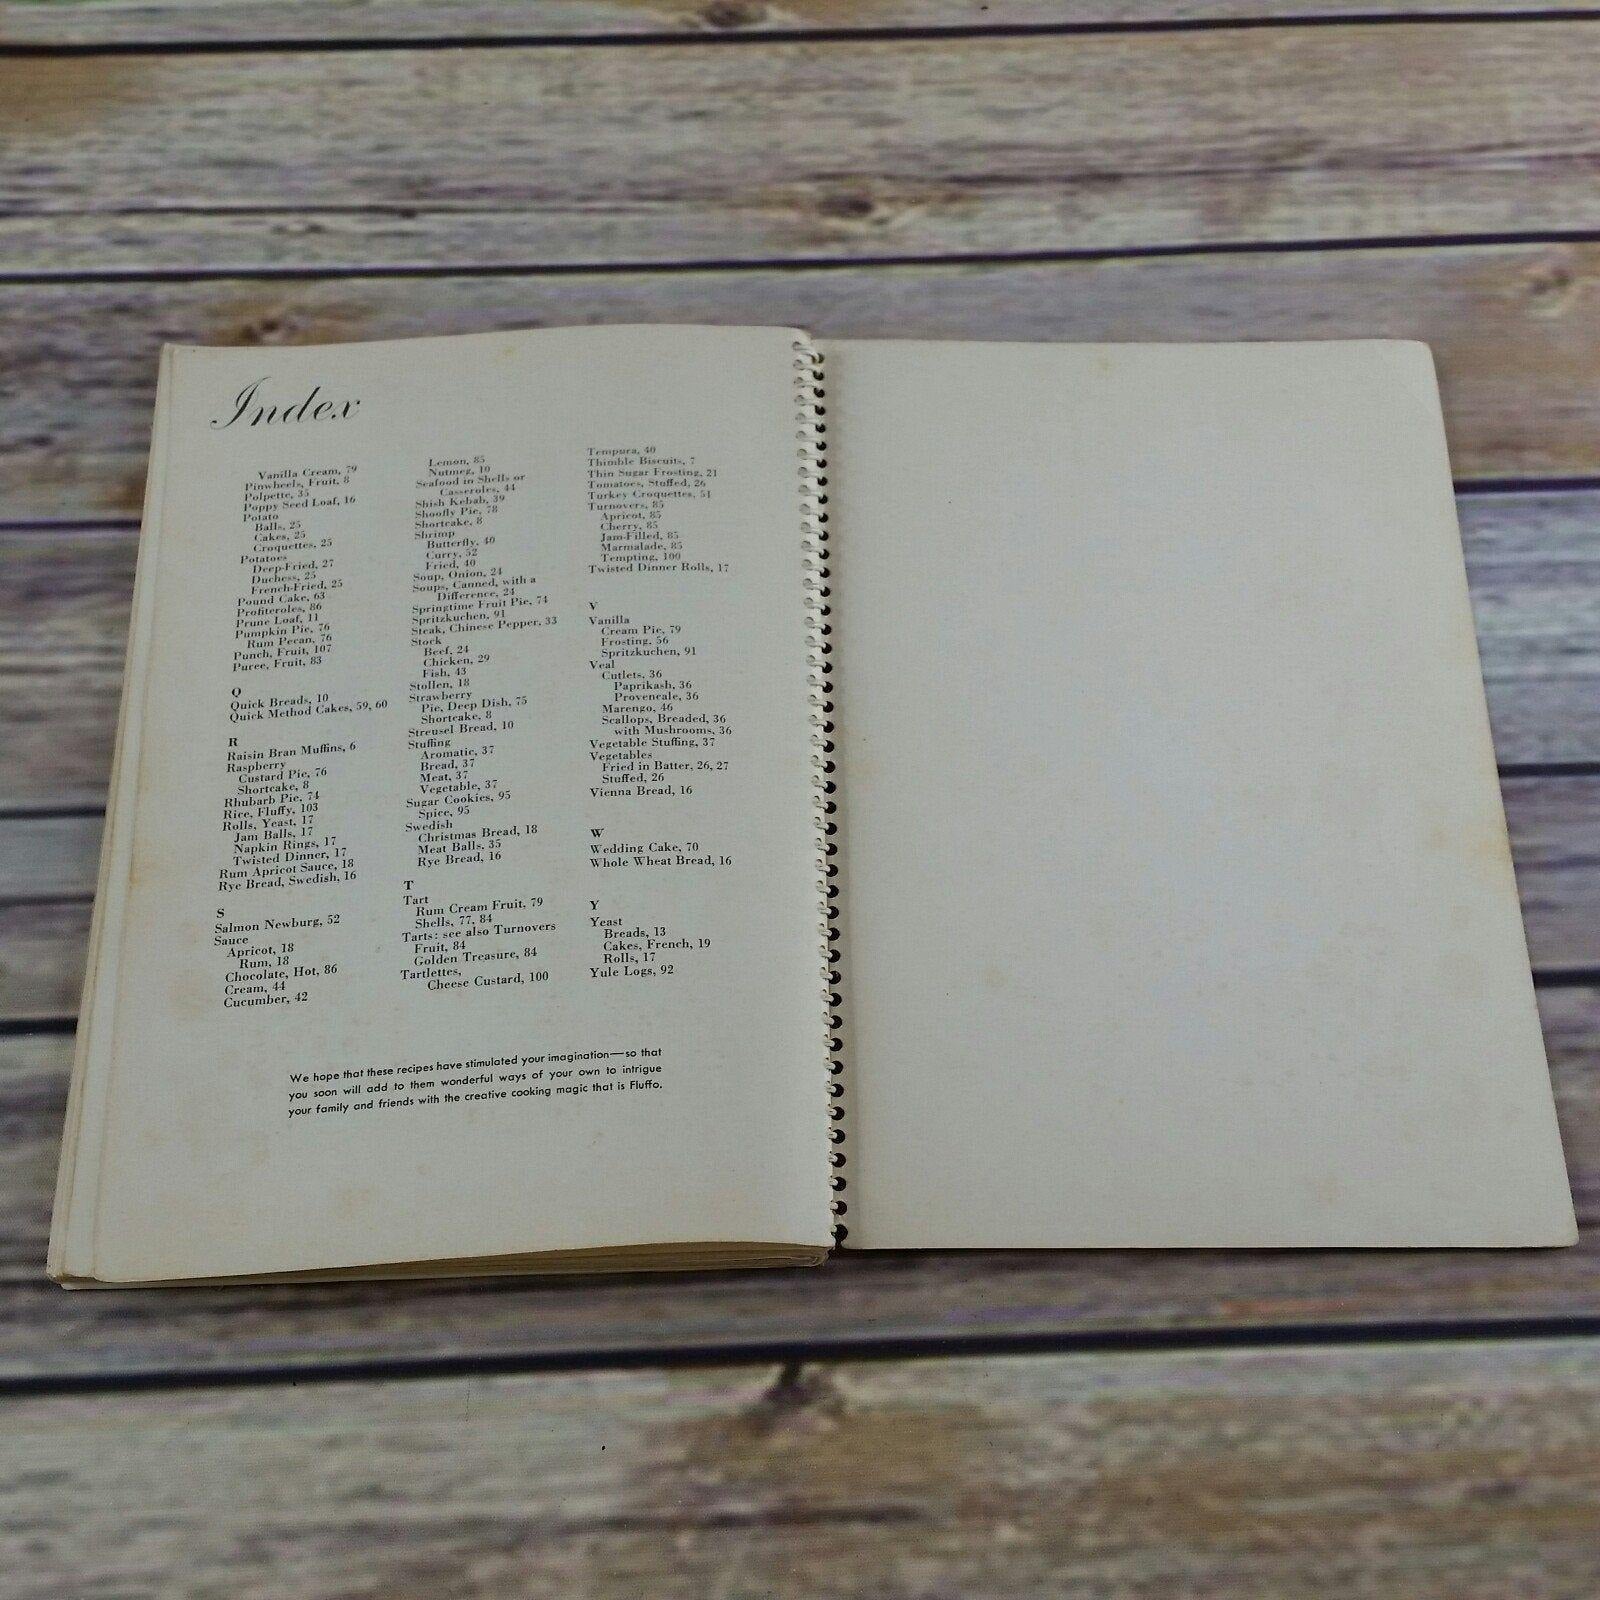 Index
Vanilla Cream, 79
Pinwheels, Fruit, 8
Polpette, 35
Poppy Seed Loaf, 16
Potato
Balls, 25
Cakes, 25
Croquettes, 25
Potatoes
Deep-Fried, 27
Duchess, 25
French-Fried, 25
Pound Cake, 63
Profiteroles, 86
Prune Loaf, 11
Pumpkin Pie, 76
Rum Pecan, 76
Punch, Fruit, 107
Puree, Fruit, 83
Q
Quick Breads, 10
Quick Method Cakes, 59, 60
R
Raisin Bran Muffins, 6
Raspberry
Custard Pie, 76
Shortcake, 8
Rhubarb Pie, 74
Rice, Fluffy, 103
Rolls, Yeast, 17
Jam Balls, 17
Napkin Rings, 17
Twisted Dinner, 17
Rum Apricot Sauce, 18
Rye Bread, Swedish, 16
S
Salmon Newburg, 52
Sauce
Apricot, 18
Rum, 18
Chocolate, Hot, 86
Cream, 44
Cucumber, 42
Lemon, 85
Nutmeg, 10
Seafood in Shells or
Casseroles, 44
Shish Kebab, 39
Shoofly Pie, 78
Shortcake, 8
Shrimp
Butterfly, 40
Curry, 52
Fried, 40
Soup, Onion, 24
Soups, Canned, with a
Difference, 24
Springtime Fruit Pie, 74
Spritzkuchen, 91
Steak, Chinese Pepper, 33
Stock
Beef, 24
Chicken, 29
Fish, 43
Stollen, 18
Strawberry
Pie, Deep Dish, 75
Shortcake, 8
Streusel Bread, 10
Stuffing
Aromatic, 37
Bread, 37
Meat, 37
Vegetable, 37
Sugar Cookies, 95
Spice, 95
Swedish
Christmas Bread, 18
Meat Balls, 35
Rye Bread, 16
T
Tart
Rum Cream Fruit, 79
Shells, 77, 84
Tarts: see also Turnovers
Fruit, 84
Golden Treasure, 84
Tartlettes,
Cheese Custard, 100
Tempura, 40
Thimble Biscuits, 7
Thin Sugar Frosting, 21
Tomatoes, Stuffed, 26
Turkey Croquettes, 51
Turnovers, 85
Apricot, 85
Cherry, 85
Jam-Filled, 85
Marmalade, 85
Tempting, 100
Twisted Dinner Rolls, 17
V
Vanilla
Cream Pie, 79
Frosting, 56
Spritzkuchen, 91
Veal
Cutlets, 36
Paprikash, 36
Provencale, 36
Marengo, 46
Scallops, Breaded, 36
with Mushrooms, 36
Vegetable Stuffing, 37
Vegetables
Fried in Batter, 26, 27
Stuffed, 26
Vienna Bread, 16
W
Wedding Cake, 70
Whole Wheat Bread, 16
Y
Yeast
Breads, 13
Cakes, French, 19
Rolls, 17
Yule Logs, 92
We hope that these recipes have stimulated your imagination—so that
you soon will add to them wonderful ways of your own to intrigue
your family and friends with the creative cooking magic that is Fluffo.